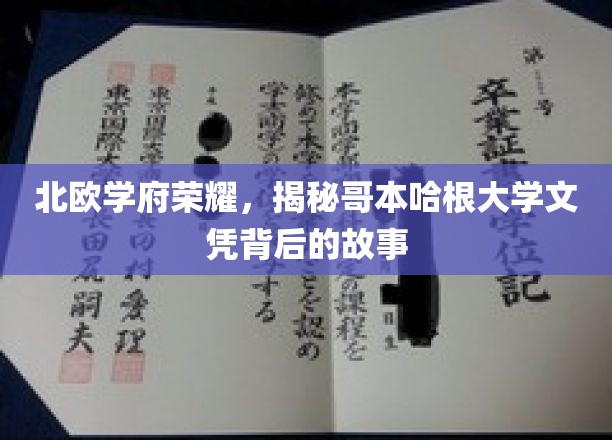 北欧学府荣耀，揭秘哥本哈根大学文
凭背后的故事
第 号
卒業証 学位記
本学商学部 定の課程を
修めて本学 ことを認め
学士(商学)の する
平成
東京国際大学 田村愛理
東京国際大 長田尻嗣夫